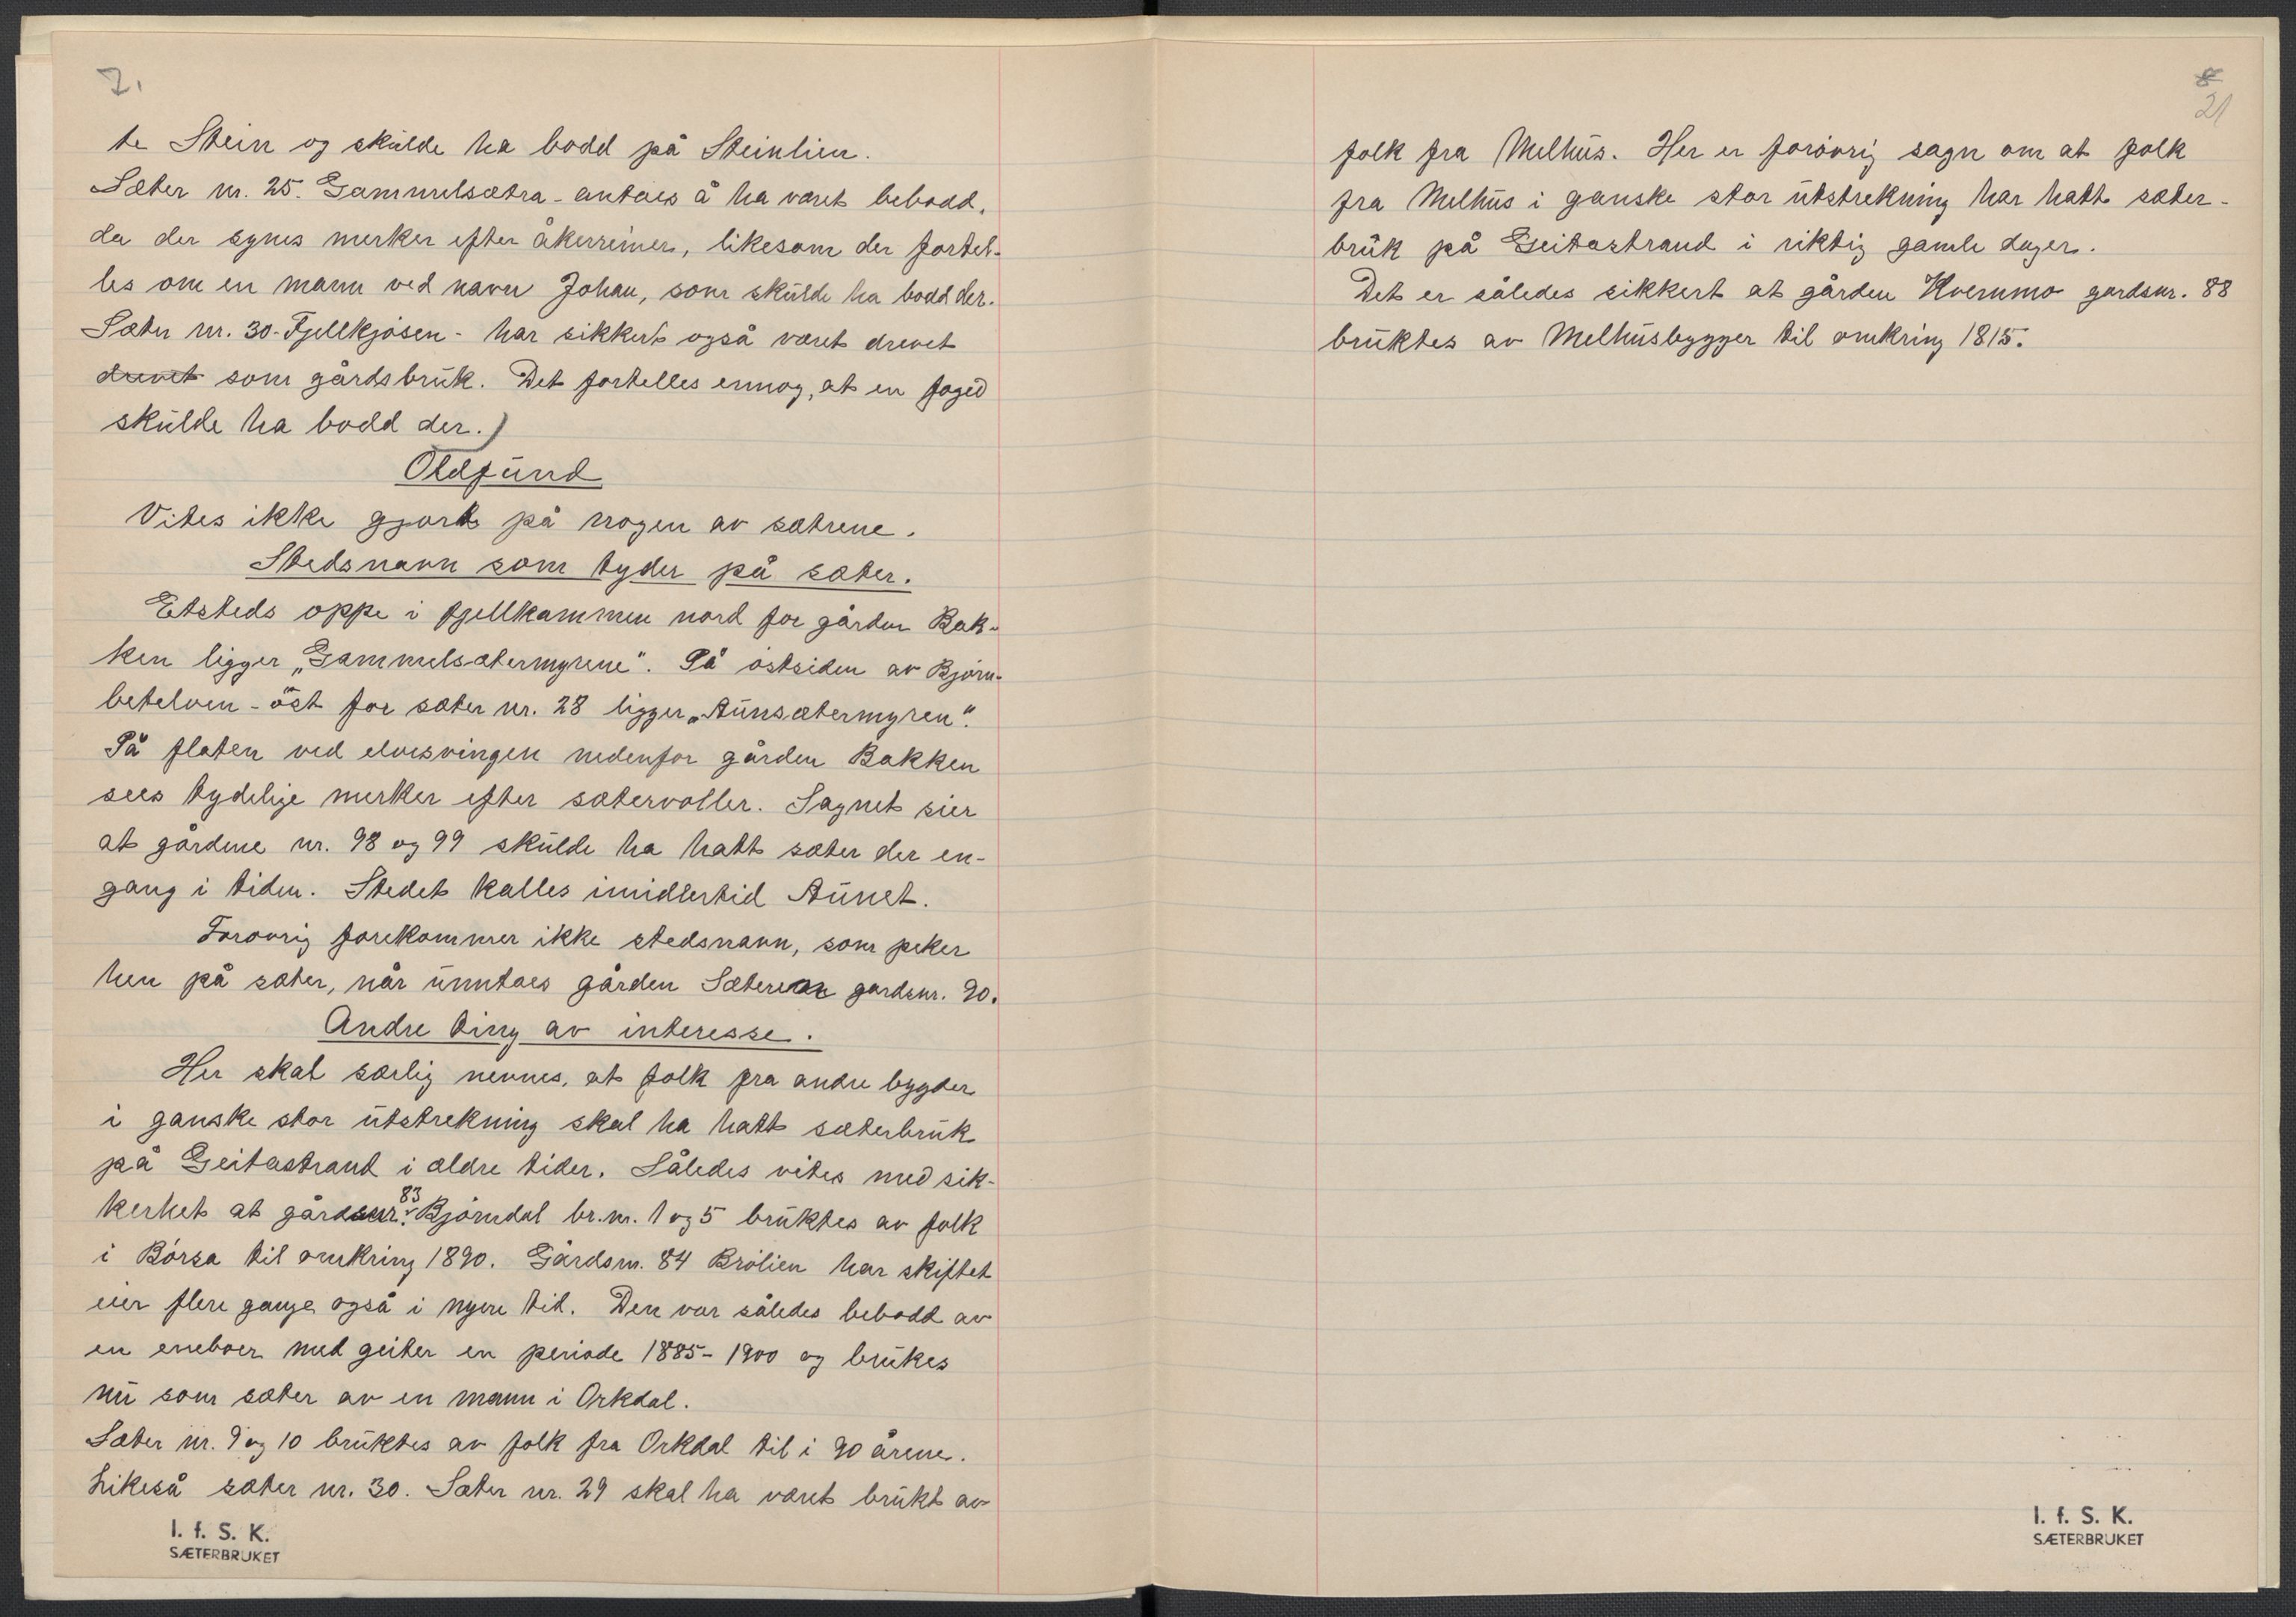 7.
te Stein og skulde ha bodd på Steinlien.
Sæter nr. 25. Gammelsætra - antaes å ha været bebodd,
da der synes merker efter åkerreiner, likesom der fortel-
les om en mann ved navn Johan, som skulde ha bodd der.
Sæter nr. 30 - Fjellkjøsen - har sikkert også været drevet
drevet som gårdsbruk. Det fortelles ennog, at en foged
skulde ha bodd der.)
Oldfund
Vites ikke gjort på nogen av sætrene.
Stedsnavn som tyder på sæter.
Etsteds oppe i fjellkammen nord for gården Bak-
ken ligger „Gammelsætermyrene". På østsiden av Bjørn-
betelven - øst for sæter nr. 28 ligger „Aunsætermyren".
På flaten ved elvesvingen nedenfor gården Bakken
sees tydelige merker efter sætervoller. Sagnet sier
at gårdene nr. 98 og 99 skulde ha hatt sæter der en-
gang i tiden. Stedet kalles imidlertid Aunet.
Forøvrig forekommer ikke stedsnavn, som peker
hen på sæter, når unntaes gården Sæteren gardsnr. 90.
Andre ting av interesse.
Her skal særlig nevnes, at folk fra andre bygder
i ganske stor utstrekning skal ha hatt sæterbruk
på Geitastrand i ældre tider. Således vites med sik-
kerhet at gårdsnr. 83 Bjørndal br.nr. 1 og 5 bruktes av folk
i Børsa til omkring 1890. Gårdsnr. 84 Brølien har skiftet
eier flere gange også i nyere tid. Den var således bebodd av
en eneboer med geiter en periode 1885 - 1900 og brukes
nu som sæter av en mann i Orkdal.
Sæter nr. 9 og 10 bruktes av folk fra Orkdal til i 90 årene.
Likeså sæter nr. 30. Sæter nr. 29 skal ha været brukt av
I. f. S. K.
SÆTERBRUKET
8
21
folk fra Melhus. Her er forøvrig sagn om at folk
fra Melhus i ganske stor utstrekning har hatt sæter-
bruk på Geitastrand i riktig gamle dager.
Det er således sikkert at gården Kvernmo gardsnr. 88
bruktes av Melhusbygger til omkring 1815.
I. f. S. K.
SÆTERBRUKET